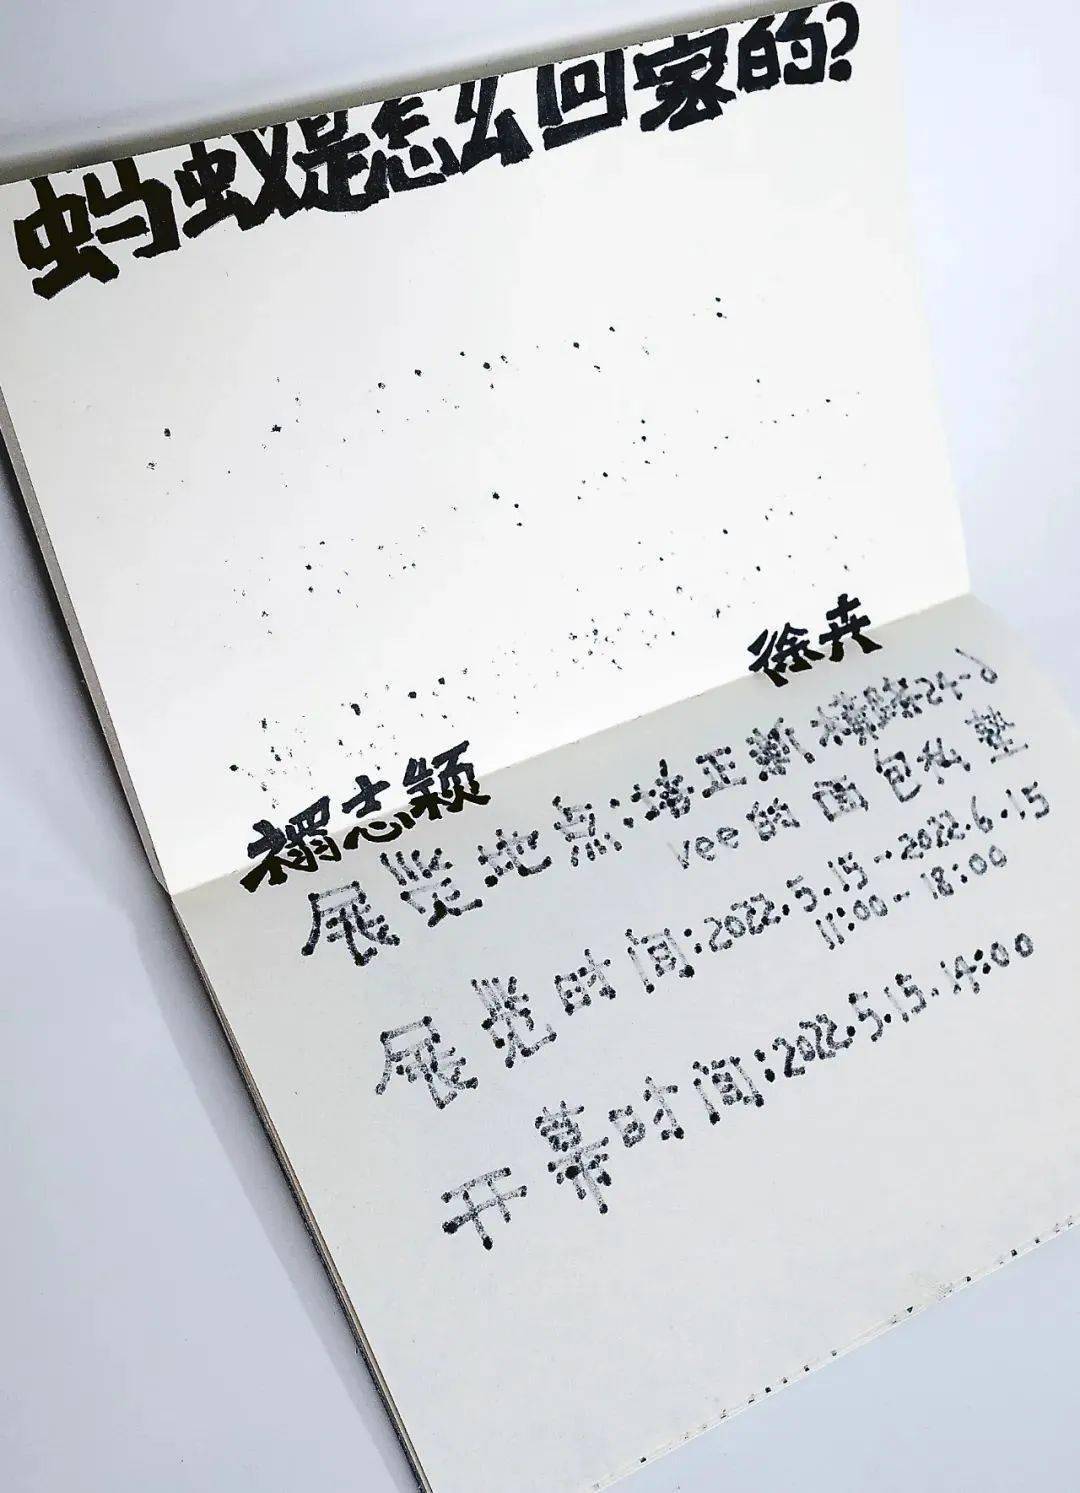 蚂蚁是怎么回家的?
徐卉
禤志颖
展览地点:塔正新横路24-6
vee的面包私塾
展览时间:2022.5.15-2022.6.15
11:00-18:00
开幕时间:2022.5.15.14:00